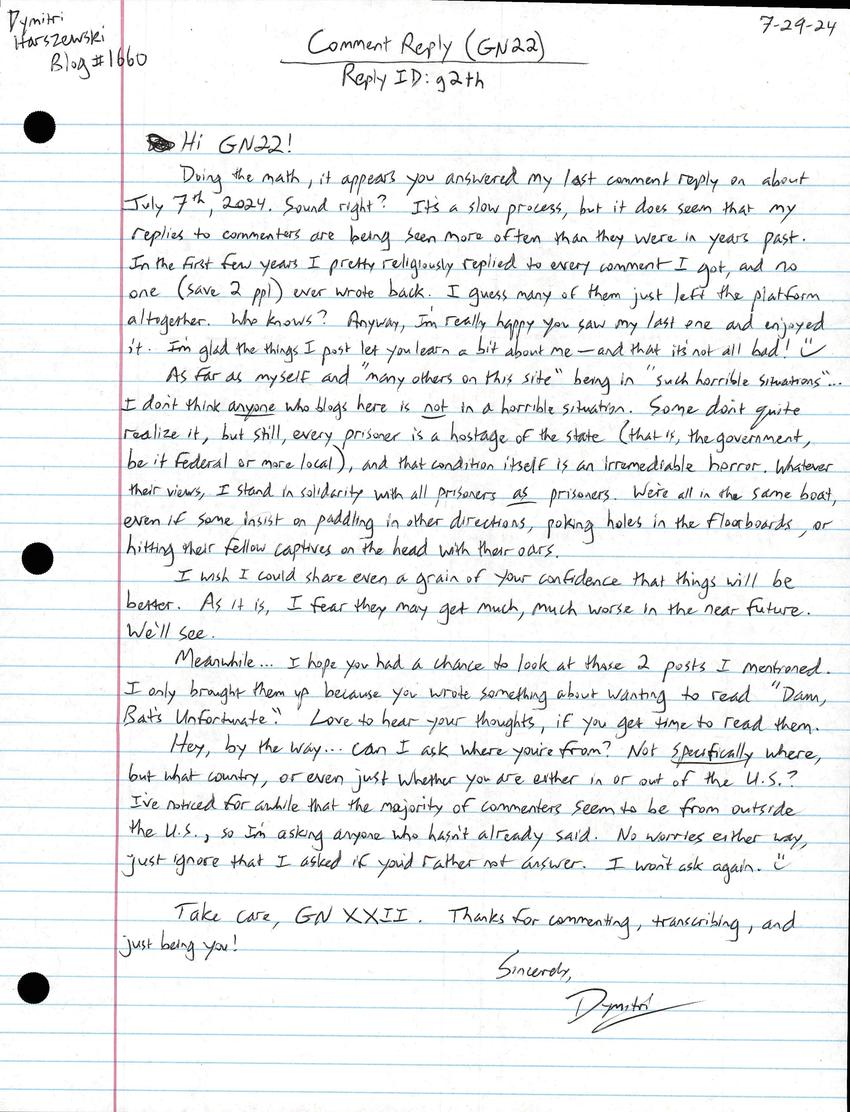 Dymitri
Harszewski
Blog #1660
7-29-24
Comment Reply (GN22)
Reply ID: g2th
Hi GN22!
Doing the math, it appears you answered my last comment reply on about
July 7th, 2024. Sound right? It's a slow process, but it does seem that my
replies to commenters are being seen more often than they were in years past.
In the first few years I pretty religiously replied to every comment I got, and no
one (save 2 ppl) ever wrote back. I guess many of them just left the platform
altogether. Who knows? Anyway, I'm really happy you saw my last one and enjoyed
it. I'm glad the things I post let you learn a bit about me – and that it's not all bad! :)
As far as myself and "many others on this site" being in "such horrible situations"...
I don't think anyone who blogs here is not in a horrible situation. Some don't quite
realize it, but still, every prisoner is a hostage of the state (that is, the government,
be it federal or more local), and that condition itself is an irremediable horror. Whatever
their views, I stand in solidarity with all prisoners as prisoners. We're all in the same boat,
even if some insist on paddling in other directions, poking holes in the floorboards, or
hitting their fellow captives on the head with their oars.
I wish I could share even a grain of your confidence that things will be
better. As it is, I fear they may get much, much worse in the near future.
We'll see.
Meanwhile... I hope you had a chance to look at those 2 posts I mentioned.
I only brought them up because you wrote something about wanting to read "Dam,
Bat's Unfortunate." Love to hear your thoughts, if you get time to read them.
Hey, by the way... can I ask where you're from? Not specifically where,
but what country, or even just whether you are either in or out of the U.S.?
I've noticed for awhile that the majority of commenters seem to be from outside
the U.S., so I'm asking anyone who hasn't already said. No worries either way,
just ignore that I asked if you'd rather not answer. I won't ask again. :)
Take care, GN XXII. Thanks for commenting, transcribing, and
just being you!
Sincerely,
Dymitri